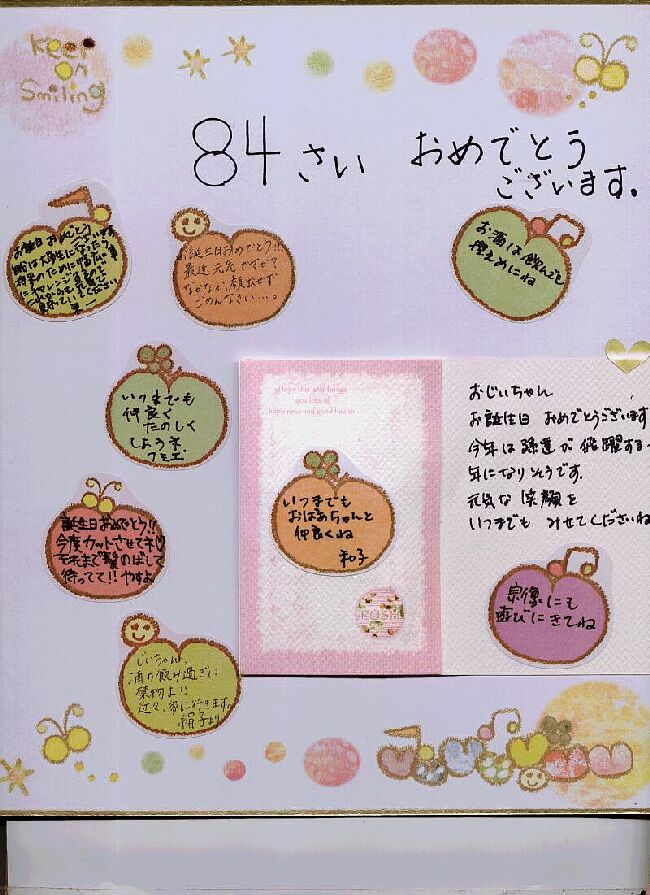 Keep
on
Smiling
84さい おめでとう
ございます。
お誕生日おめでとう
誕生日おめでとう!!
最近元気ですか?
なかなか顔出せず
ごめんなさい…。
お酒は飲んでも
控えめにね
いつまでも
仲良く
たのしく
しようネ
フミエ
誕生日おめでとう!!
今度カットさせてネ!
それまで髪のばして
待ってて!! やすよ
じいちゃん、
酒の飲み過ぎに
禁物よ!!
近々、家に行きます。
絹子より
I hope this day brings
you lots of
happiness and good health
いつまでも
おばあちゃんと
仲良くね
和子
おじいちゃん
お誕生日 おめでとうございます
今年は 飛躍する
年になりそうです.
元気な 笑顔を
いつまでも みせてくださいね
宗像にも
遊びにきてね